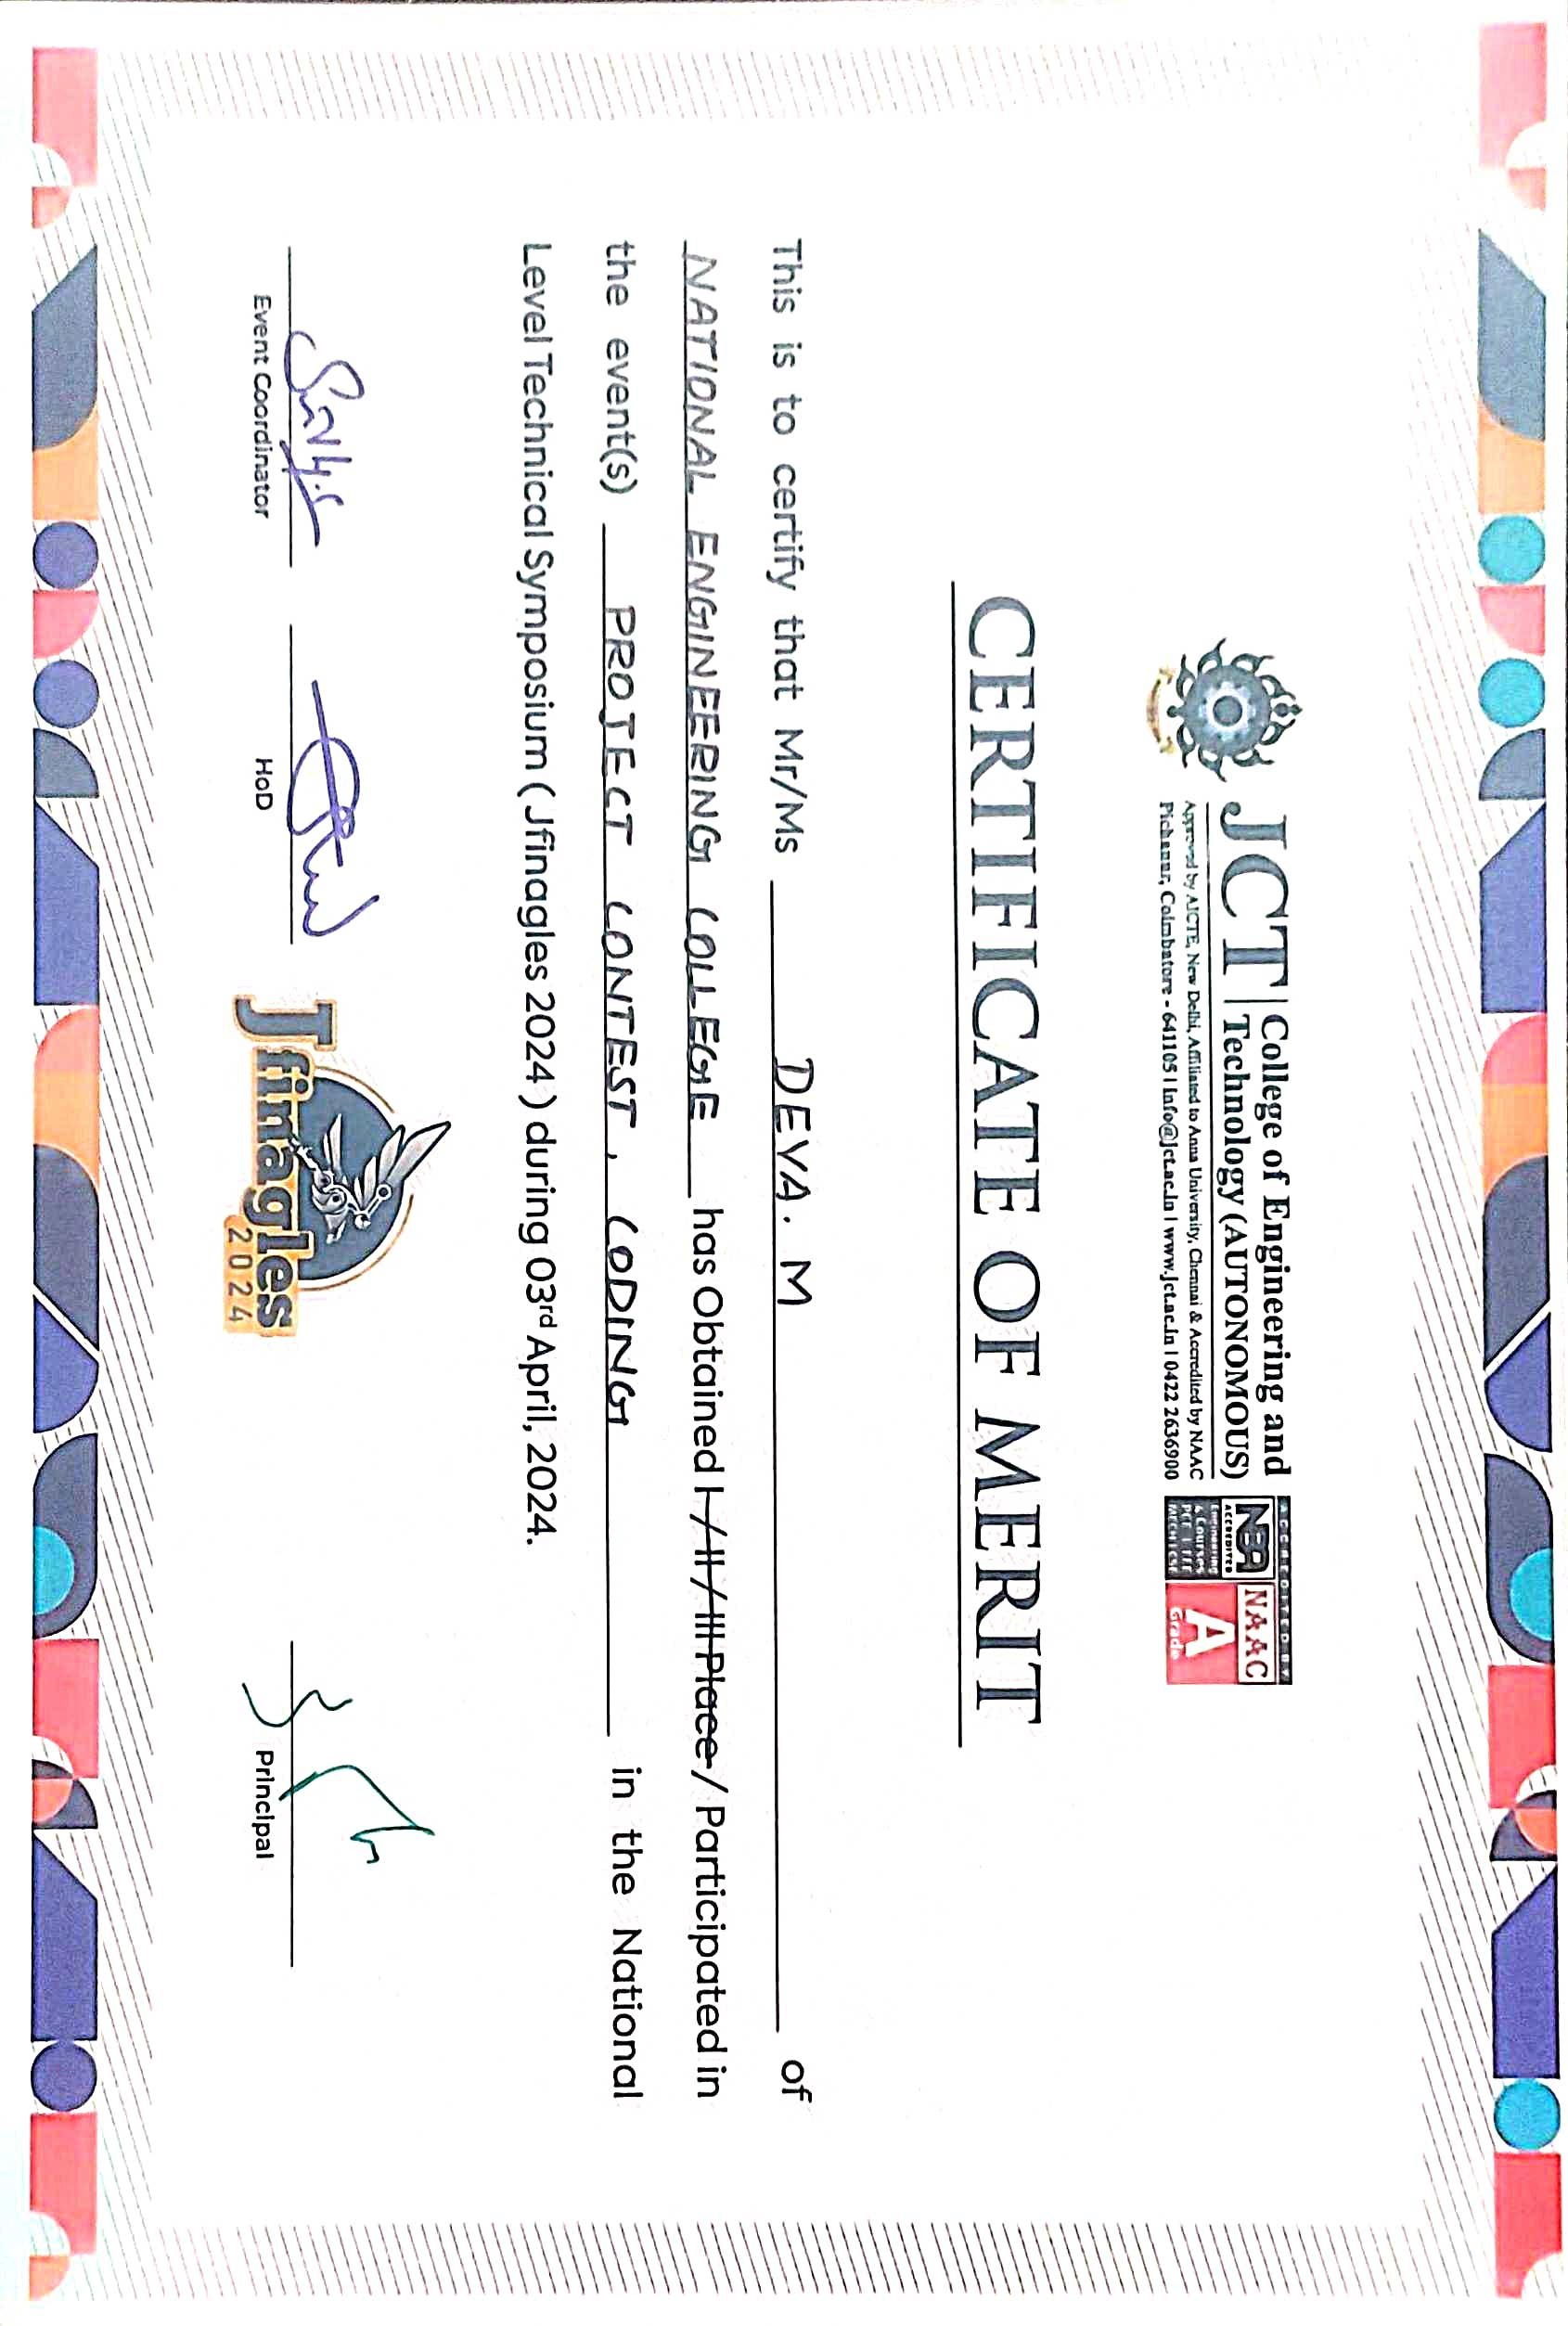 JCT
College of Engineering and
Technology (AUTONOMOUS)
Approved by AICTE, New Delhi, Affiliated to Anna University, Chennai & Accredited by NAAC
Pichanur, Coimbatore - 641105 | info@jct.ac.in | www.jct.ac.in | 0422 2636900
ACCREDITED BY
NBA
ACCREDITED
NAAC
A
Grade
CERTIFICATE OF MERIT
This is to certify that Mr/Ms DEVA. M of
NATIONAL ENGINEERING COLLEGE has Obtained I / II / III Place / Participated in
the event(s) PROJECT CONTEST, CODING in the National
Level Technical Symposium ( Jfinagles 2024 ) during 03rd April, 2024.
Event Coordinator
HoD
Jfinagles
2024
Principal